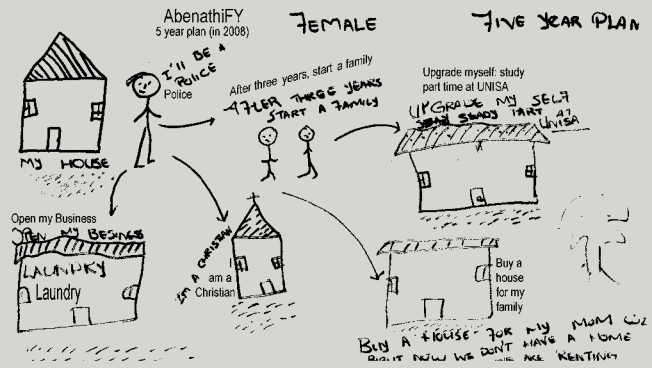 AbenathiFY
5 year plan (in 2008)
FEMALE
FIVE YEAR PLAN
I'll BE A
POLICE
Police
After three years, start a family
AFTER THREE YEARS
START A FAMILY
Upgrade myself: study
part time at UNISA
UPGRADE MY SELF
STUDY PART AT
UNISA
MY HOUSE
Open my Business
OPEN MY BESINESS
LAUNDRY
Laundry
I'M A CHRISTIAN
I
am a
Christian
Buy a
house
for my
family
BUY A HOUSE FOR MY MOM COZ
RIGHT NOW WE DON'T HAVE A HOME
WE ARE RENTING